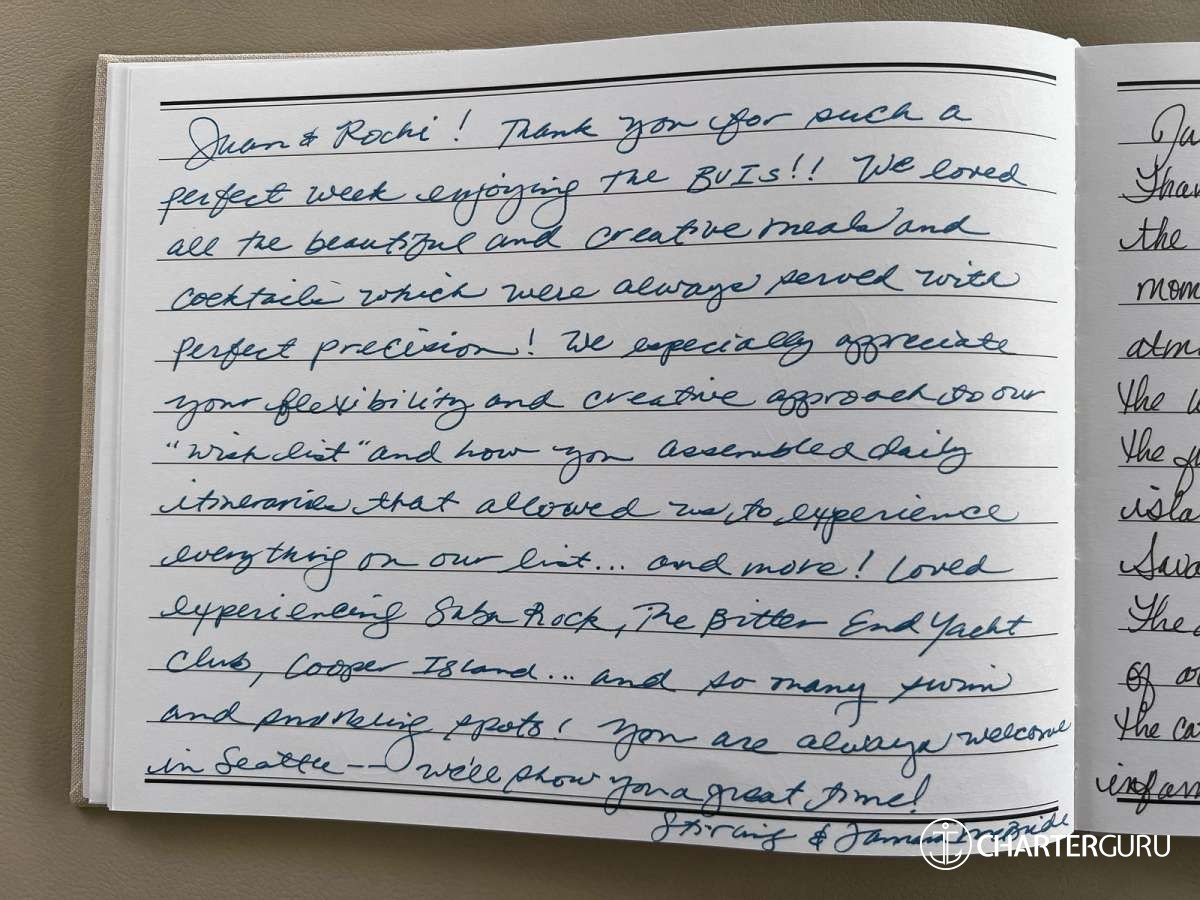 Juan & Rochi! Thank you for such a
perfect week enjoying the BVIs!! We loved
all the beautiful and creative meals and
cocktails which were always served with
perfect precision! We especially appreciate
your flexibility and creative approach to our
"wish list" and how you assembled daily
itineraries that allowed us to experience
everything on our list... and more! Loved
experiencing Saba Rock, The Bitter End Yacht
Club, Cooper Island... and so many swim
and snorkeling spots! You are always welcome
in Seattle -- we'll show you a great time!
Stirling & McBride
CHARTERGURU
the
the
the
The
of
the